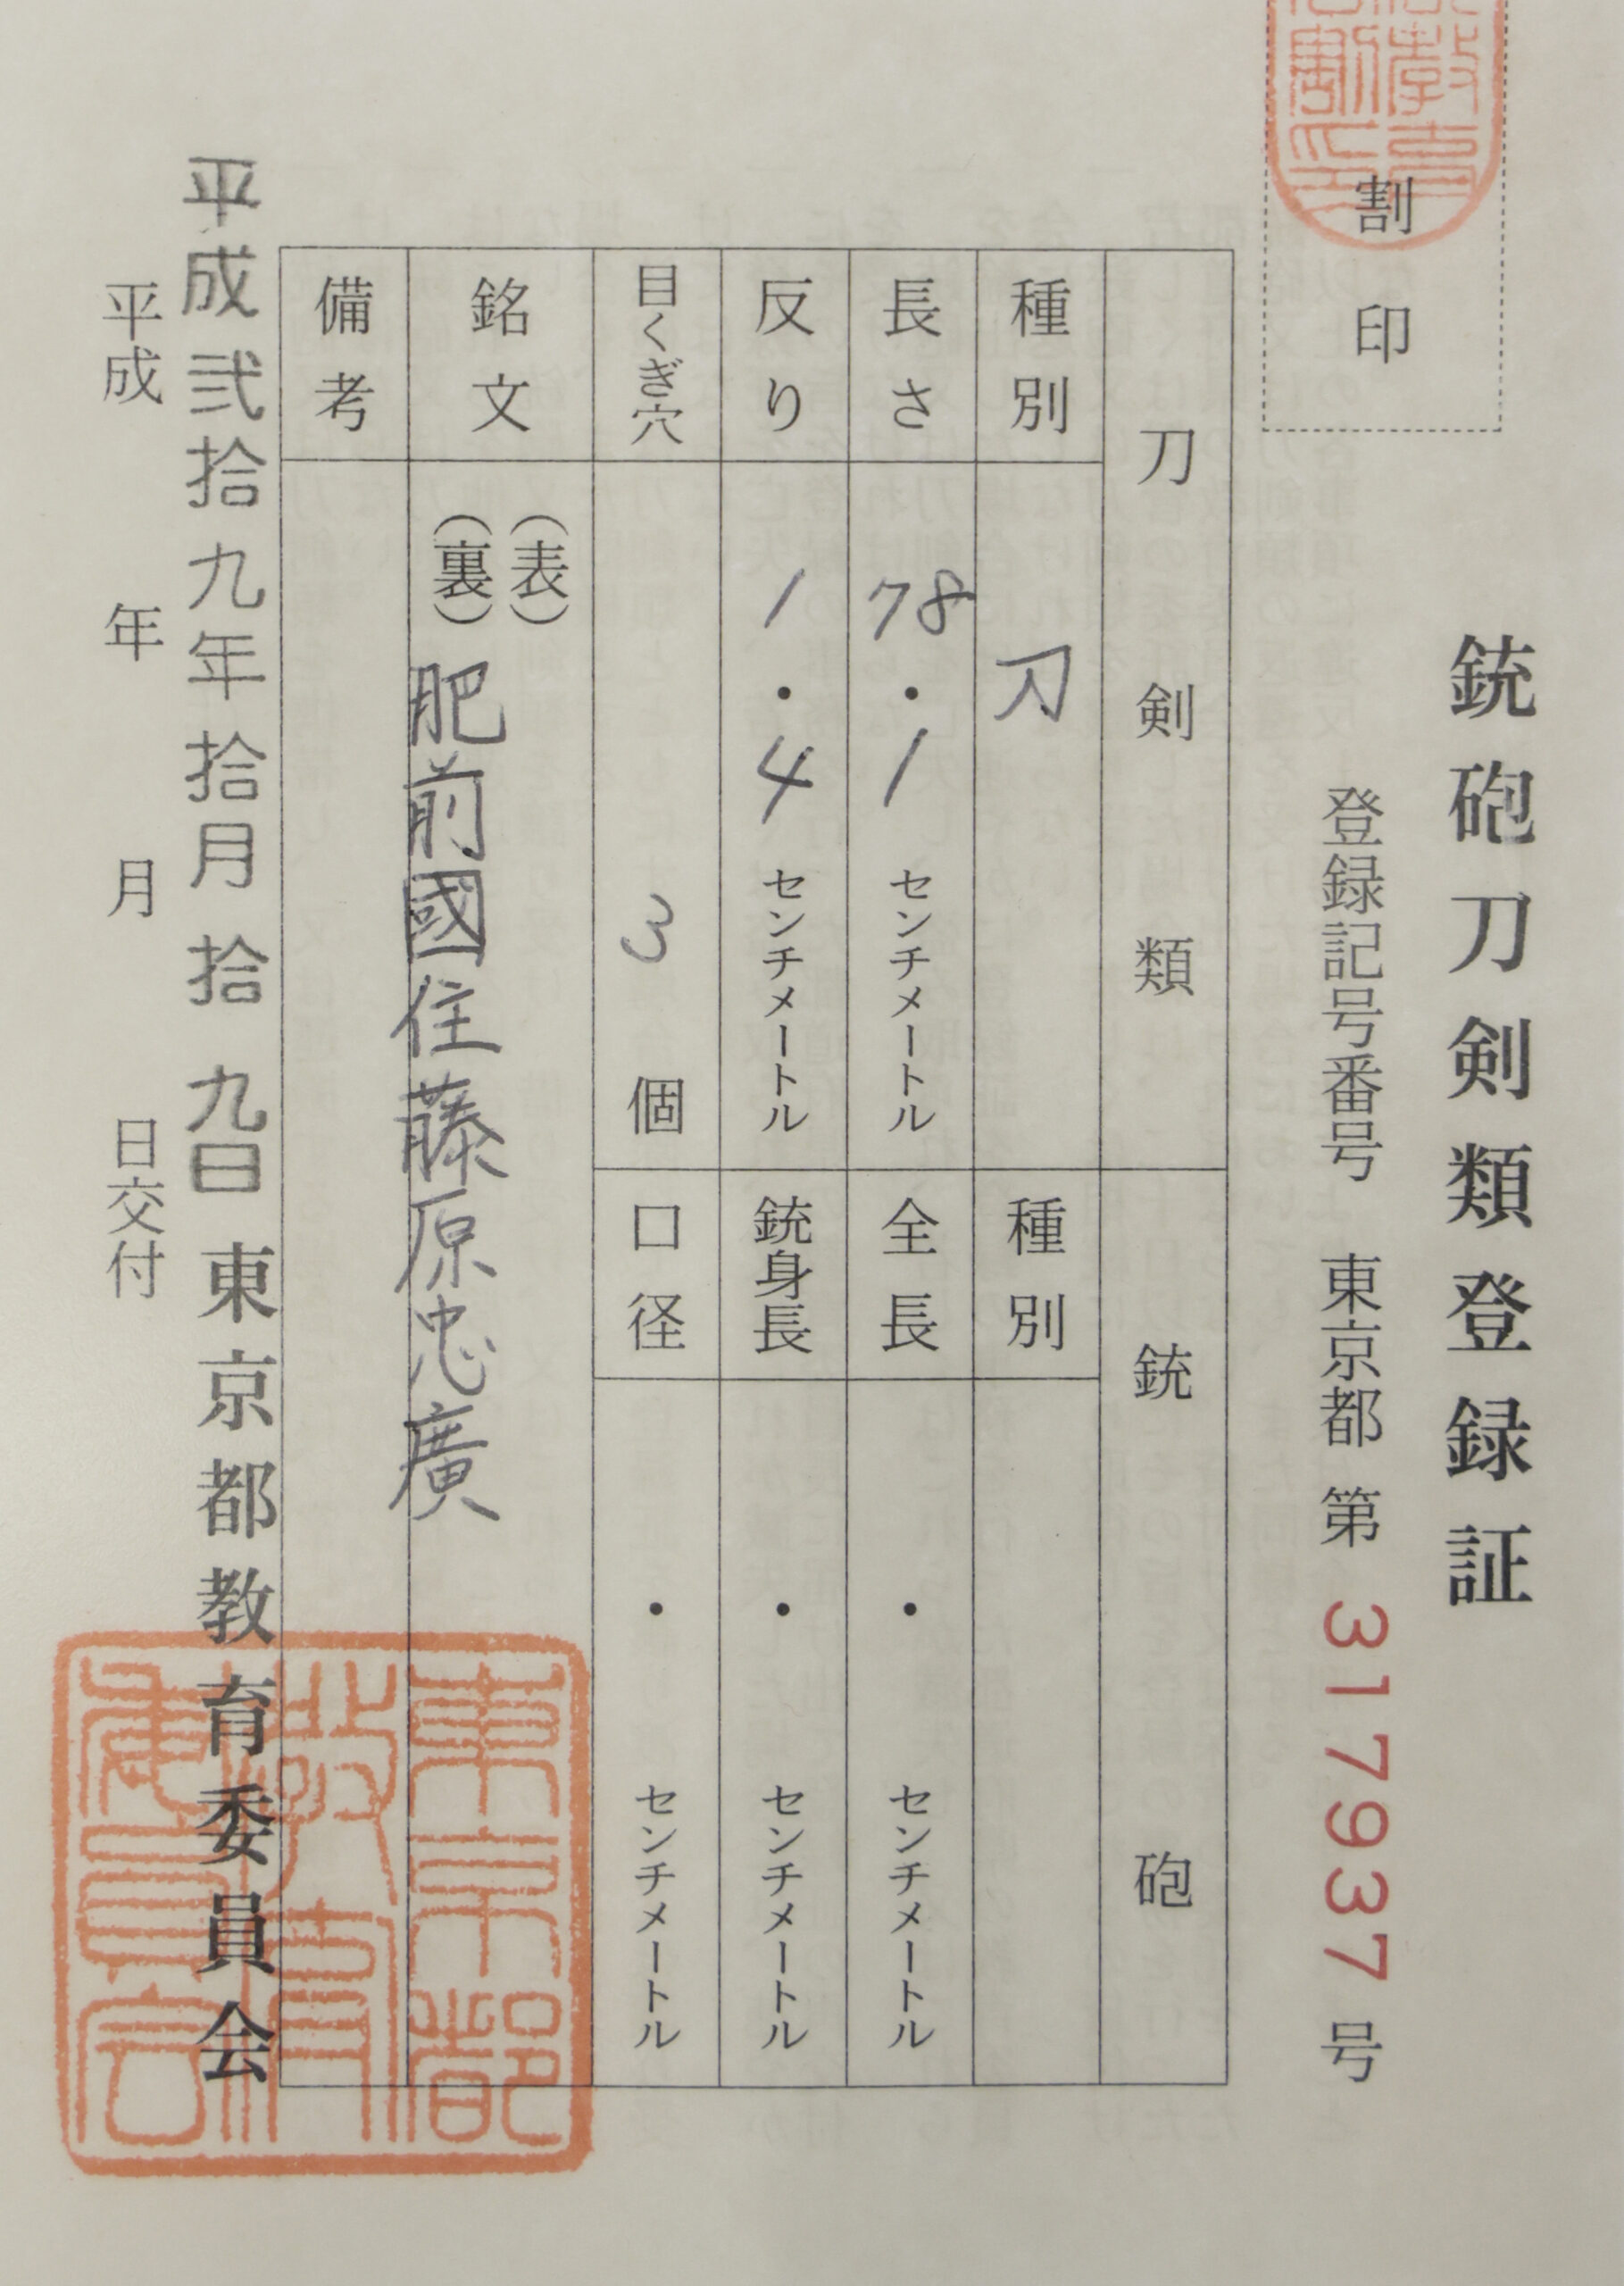 銃砲刀剣類登録証
登録記号番号 東京都 第 317937 号
割印
刀剣類
銃砲
種別 刀
種別
長さ 78・1 センチメートル
全長 ・ センチメートル
反り 1・4 センチメートル
銃身長 ・ センチメートル
目くぎ穴 3 個
口径 ・ センチメートル
銘文
(表)
(裏) 肥前國住藤原忠廣
備考
平成弐拾九年拾月拾九日 東京都教育委員会
平成 年 月 日交付
東京都教育委員会